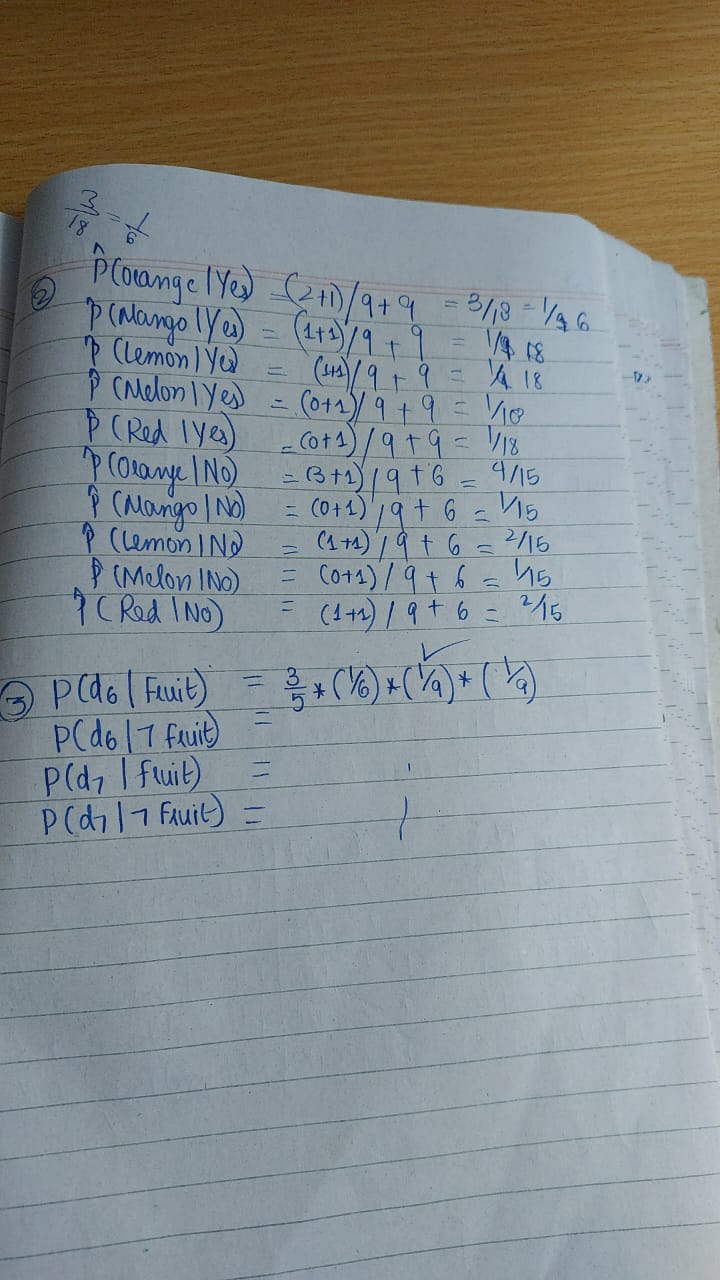 3/18 = 1/6
② P̂(orange | Yes) = (2+1)/9+9 = 3/18 = 1/9 6
P̂(Mango | Yes) = (1+1)/9 + 9 = 1/9 18
P̂(Lemon | Yes) = (1+1)/9 + 9 = 1/9 18
P̂(Melon | Yes) = (0+1)/9+9 = 1/18
P̂(Red | Yes) = (0+1)/9+9 = 1/18
P̂(Orange | No) = (3+1)/9+6 = 4/15
P̂(Mango | No) = (0+1)/9 + 6 = 1/15
P̂(Lemon | No) = (1+1)/9 + 6 = 2/15
P̂(Melon | No) = (0+1)/9 + 6 = 1/15
P̂(Red | No) = (1+1)/9 + 6 = 2/15
③ P(d6 | Fruit) = 3/5 * (1/6) * (1/9) * (1/9)
P(d6 | ¬ fruit) =
P(d7 | fruit) =
P(d7 | ¬ Fruit) =